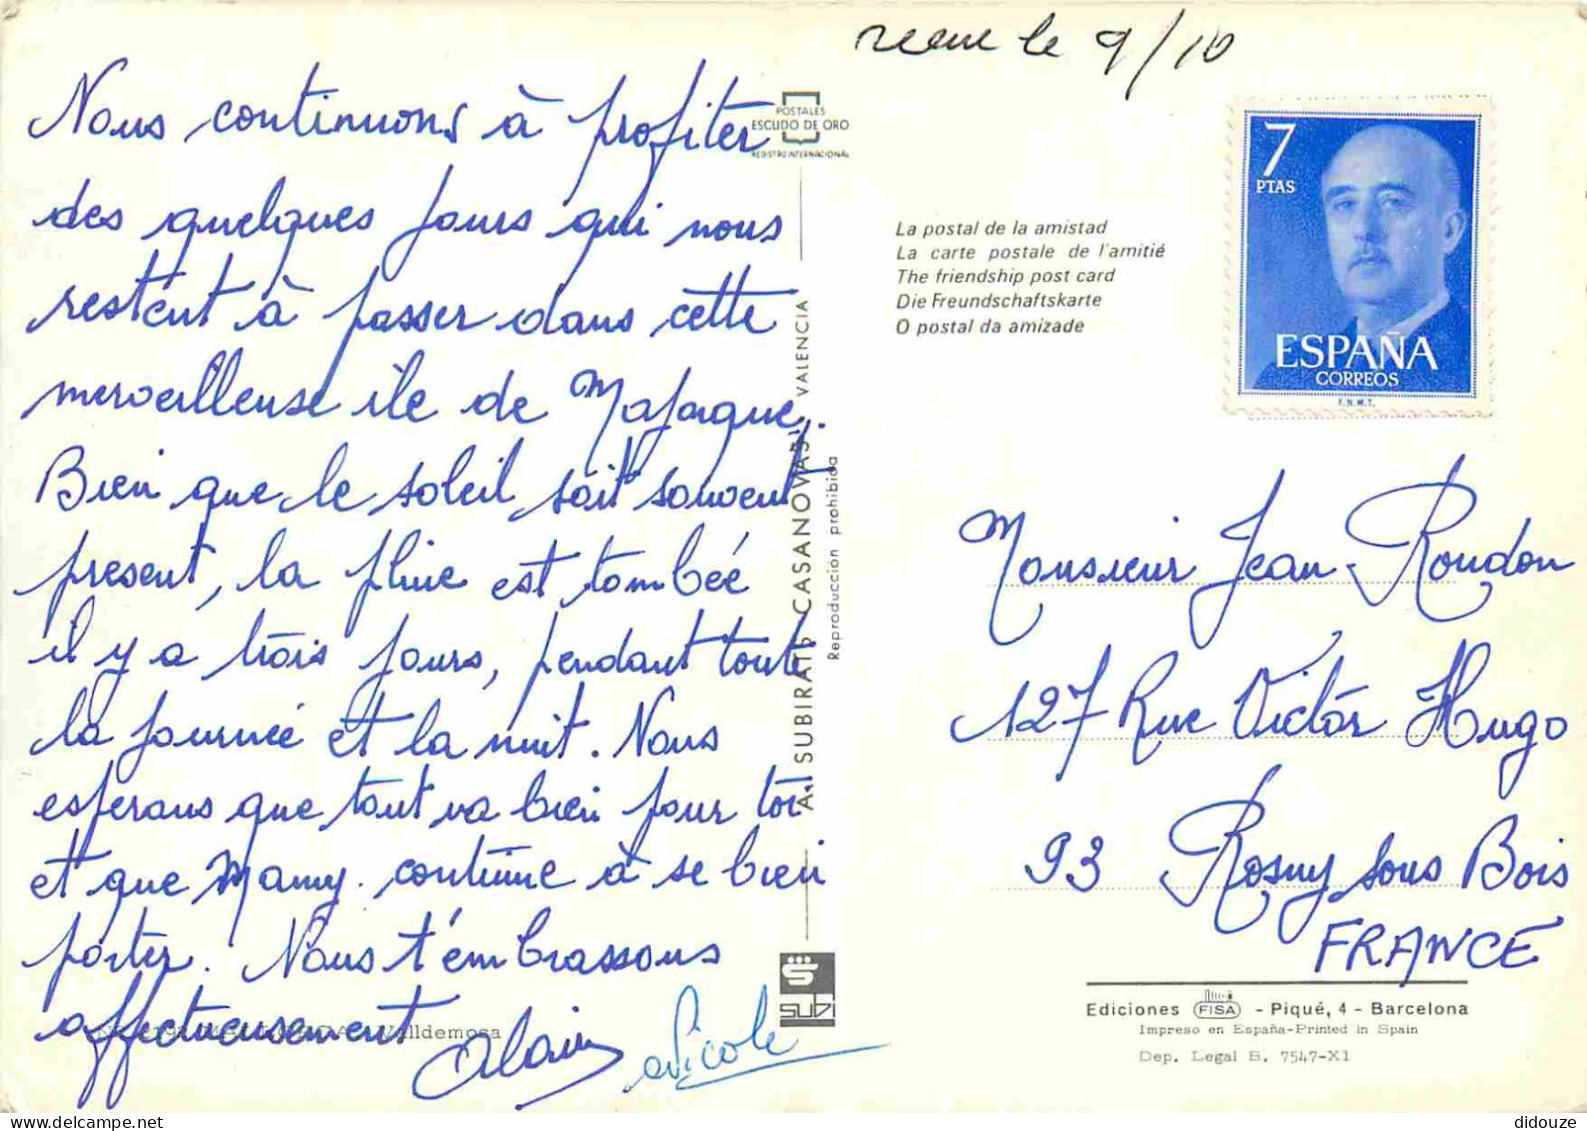 recu le 9/10
Nous continuons à profiter
des quelques jours qui nous
restent à passer dans cette
merveilleuse ile de Majorque.
Bien que le soleil soit souvent
present, la pluie est tombée
il y a trois jours, pendant toute
la journée et la nuit. Nous
esperons que tout va bien pour toi
et que Mamy continue à se bien
porter. Nous t'embrassons
affectueusement
Alain Nicole
Valldemosa
POSTALES
ESCUDO DE ORO
REGISTRO INTERNACIONAL
A. SUBIRATS CASANOVAS
VALENCIA
Reproducción prohibida
SUBI
La postal de la amistad
La carte postale de l'amitié
The friendship post card
Die Freundschaftskarte
O postal da amizade
7
PTAS
ESPAÑA
CORREOS
F.N.M.T.
Monsieur Jean Roudon
127 Rue Victor Hugo
93 Rosny sous Bois
FRANCE
Ediciones FISA - Piqué, 4 - Barcelona
Impreso en España-Printed in Spain
Dep. Legal B. 7547-XI
didouze